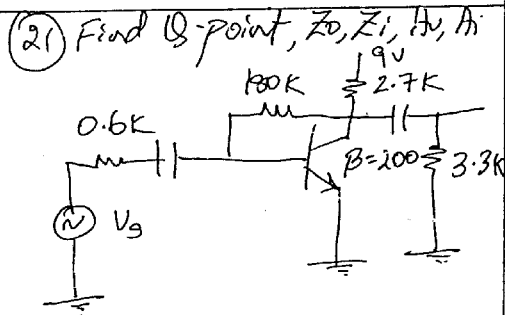 (21) Find Q-point, Zo, Zi, Av, Ai
9v
180K
2.7K
0.6K
β=200
3.3K
Vg